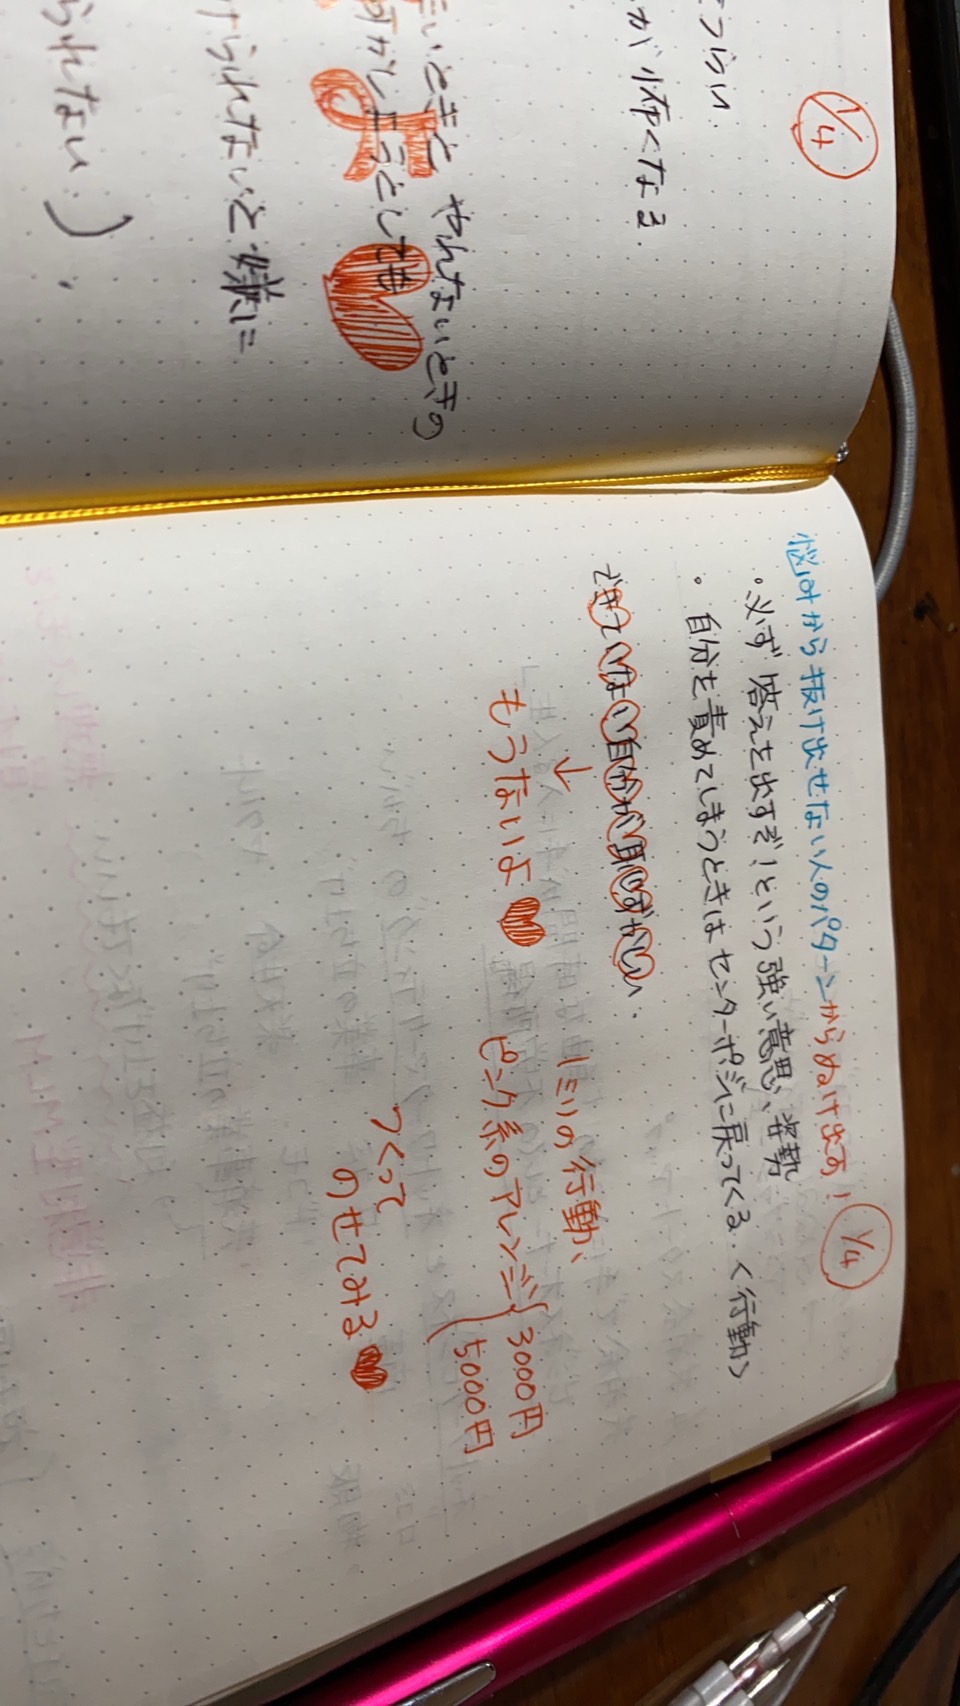 1/4
つらい.
が怖くなる.
いときと やんないときの
何かしようとしても
けられないと嫌に
られない)
悩みから抜け出せない人のパターンからぬけ出す! 1/4
・必ず答えを出すぞ!という強い意思、姿勢
・自分を責めてしまうときはセンターポジに戻ってくる〈行動〉
できていない自分が恥ずかしい.
↓
もうないよ♥
1ミリの行動、
ピンク系のアレンジ{3000円
5000円
つくって
のせてみる♥